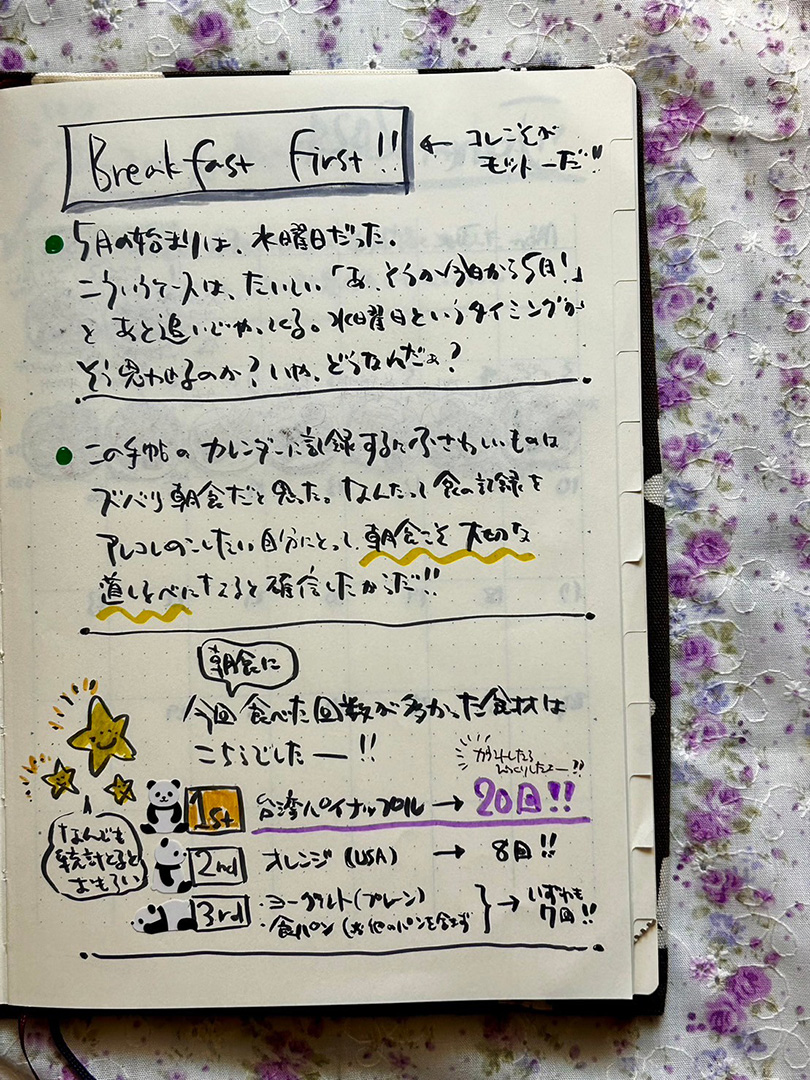 Breakfast First!!
← コレこそが
モットーだ!!
5月の始まりは、水曜日だった。
こういうケースは、たいてい「あ、そうか今日から5月!」
と あと追いでやってくる。水曜日というタイミングが
そう思わせるのか?いや、どうなんだぁ?
この手帖の カレンダーに記録するにふさわしいものは
ズバリ朝食だと思った。なんたって食の記録を
アレコレのこしたい自分にとって、朝食こそ 大切な
道しるべになると確信したからだ!!
朝食に
今回 食べた回数が多かった食材は
こちらでしたー!!
カウントしたら
びっくりしたよー!!
1st 台湾パイナップル → 20回!!
なんでも
統計とると
おもろい
2nd オレンジ (USA) → 8回!!
3rd ・ヨーグルト(プレーン)
・食パン (※他のパンを含まず
} → いずれも
7回!!